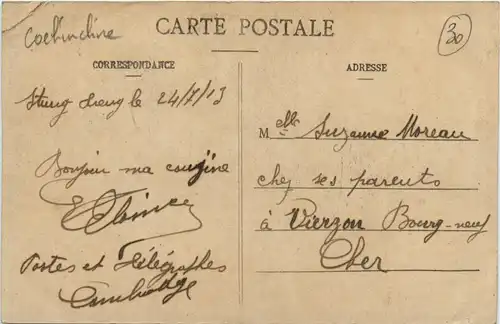 Cochinchine
CARTE POSTALE
30
CORRESPONDANCE
ADRESSE
Stung Treng le 24/7/13
Melle Suzanne Moreau
Bonjour ma cousine
chez ses parents
à Vierzon Bourg-neuf
Cher
Postes et Télégraphes
Cambodge